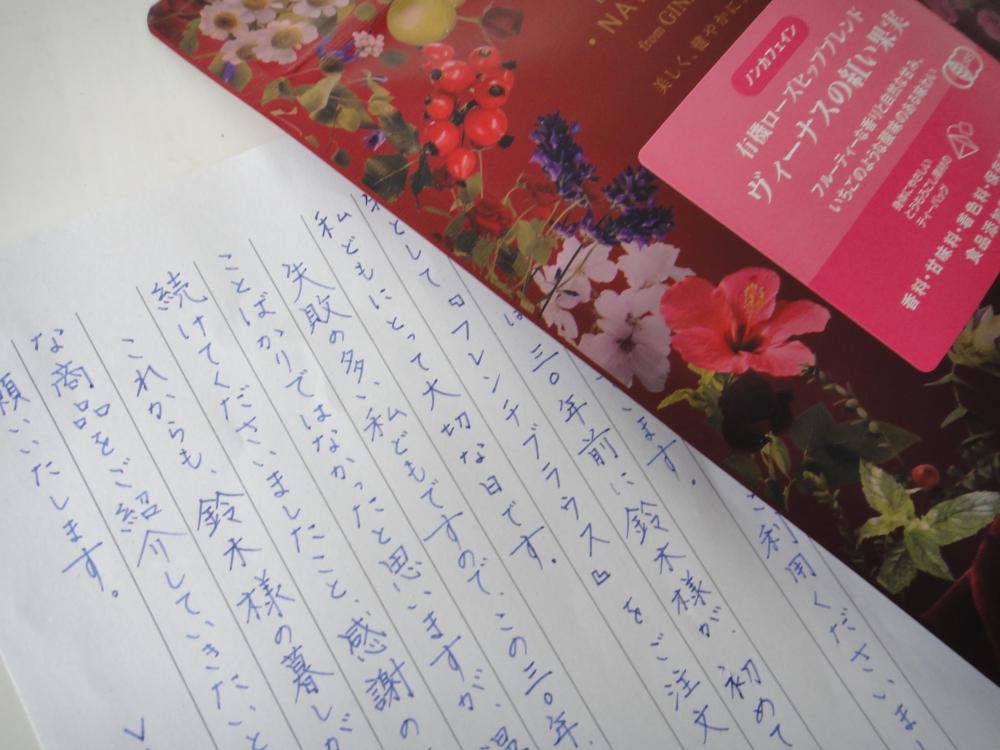 NA
from GIN
美しく、健やかに
ノンカフェイン
有機ローズヒップブレンド
ヴィーナスの紅い果実
フルーティーな香りと自然な甘み、
いちごのような酸味のある味わい
身体にやさしい
とうもろこし素材の
ティーバッグ
香料・甘味料・着色料・保存
食品添
利用くださいま
います。
は三〇年前に鈴木様が、初めて
として『フレンチブラウス』をご注文
私どもにとって大切な日です。
失敗の多い私どもですので、この三〇年、
ことばかりではなかったと思いますが、温
続けてくださいましたこと、感謝の
これからも、鈴木様の暮しが
な商品をご紹介していきたいと
願いいたします。